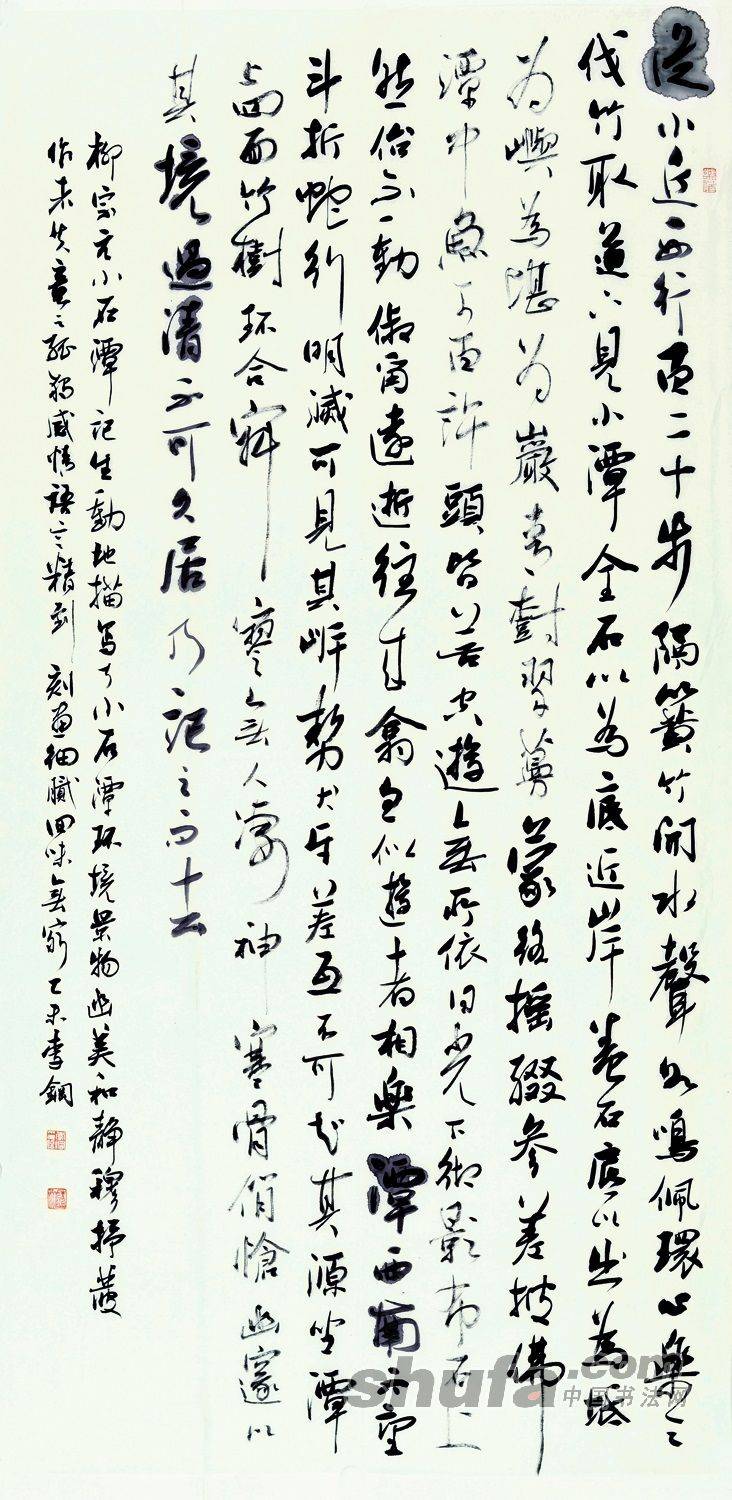 從小丘西行百二十步隔篁竹闻水聲如鳴佩環心樂之
伐竹取道下見小潭全石以為底近岸卷石底以出為坻
为嶼為堪为巖青樹翠蔓蒙络摇綴參差披拂
潭中魚可百許頭皆若空遊無所依日光下澈影布石上
然佁不動俶甭遠逝往来翕忽似遊者相樂潭西南而望
斗折蛇行明滅可見其岸勢犬牙差互不可知其源坐潭
上四面竹樹环合寂寥無人凄神寒骨悄愴幽邃以
其境過清不可久居乃記之而去
柳宗元小石潭記生動地描写了小石潭环境景物幽美和静穆抒發
作者失意之孤独感情語言精到刻画細膩回味無窮乙未李鋼
shufa.com
中国书法网